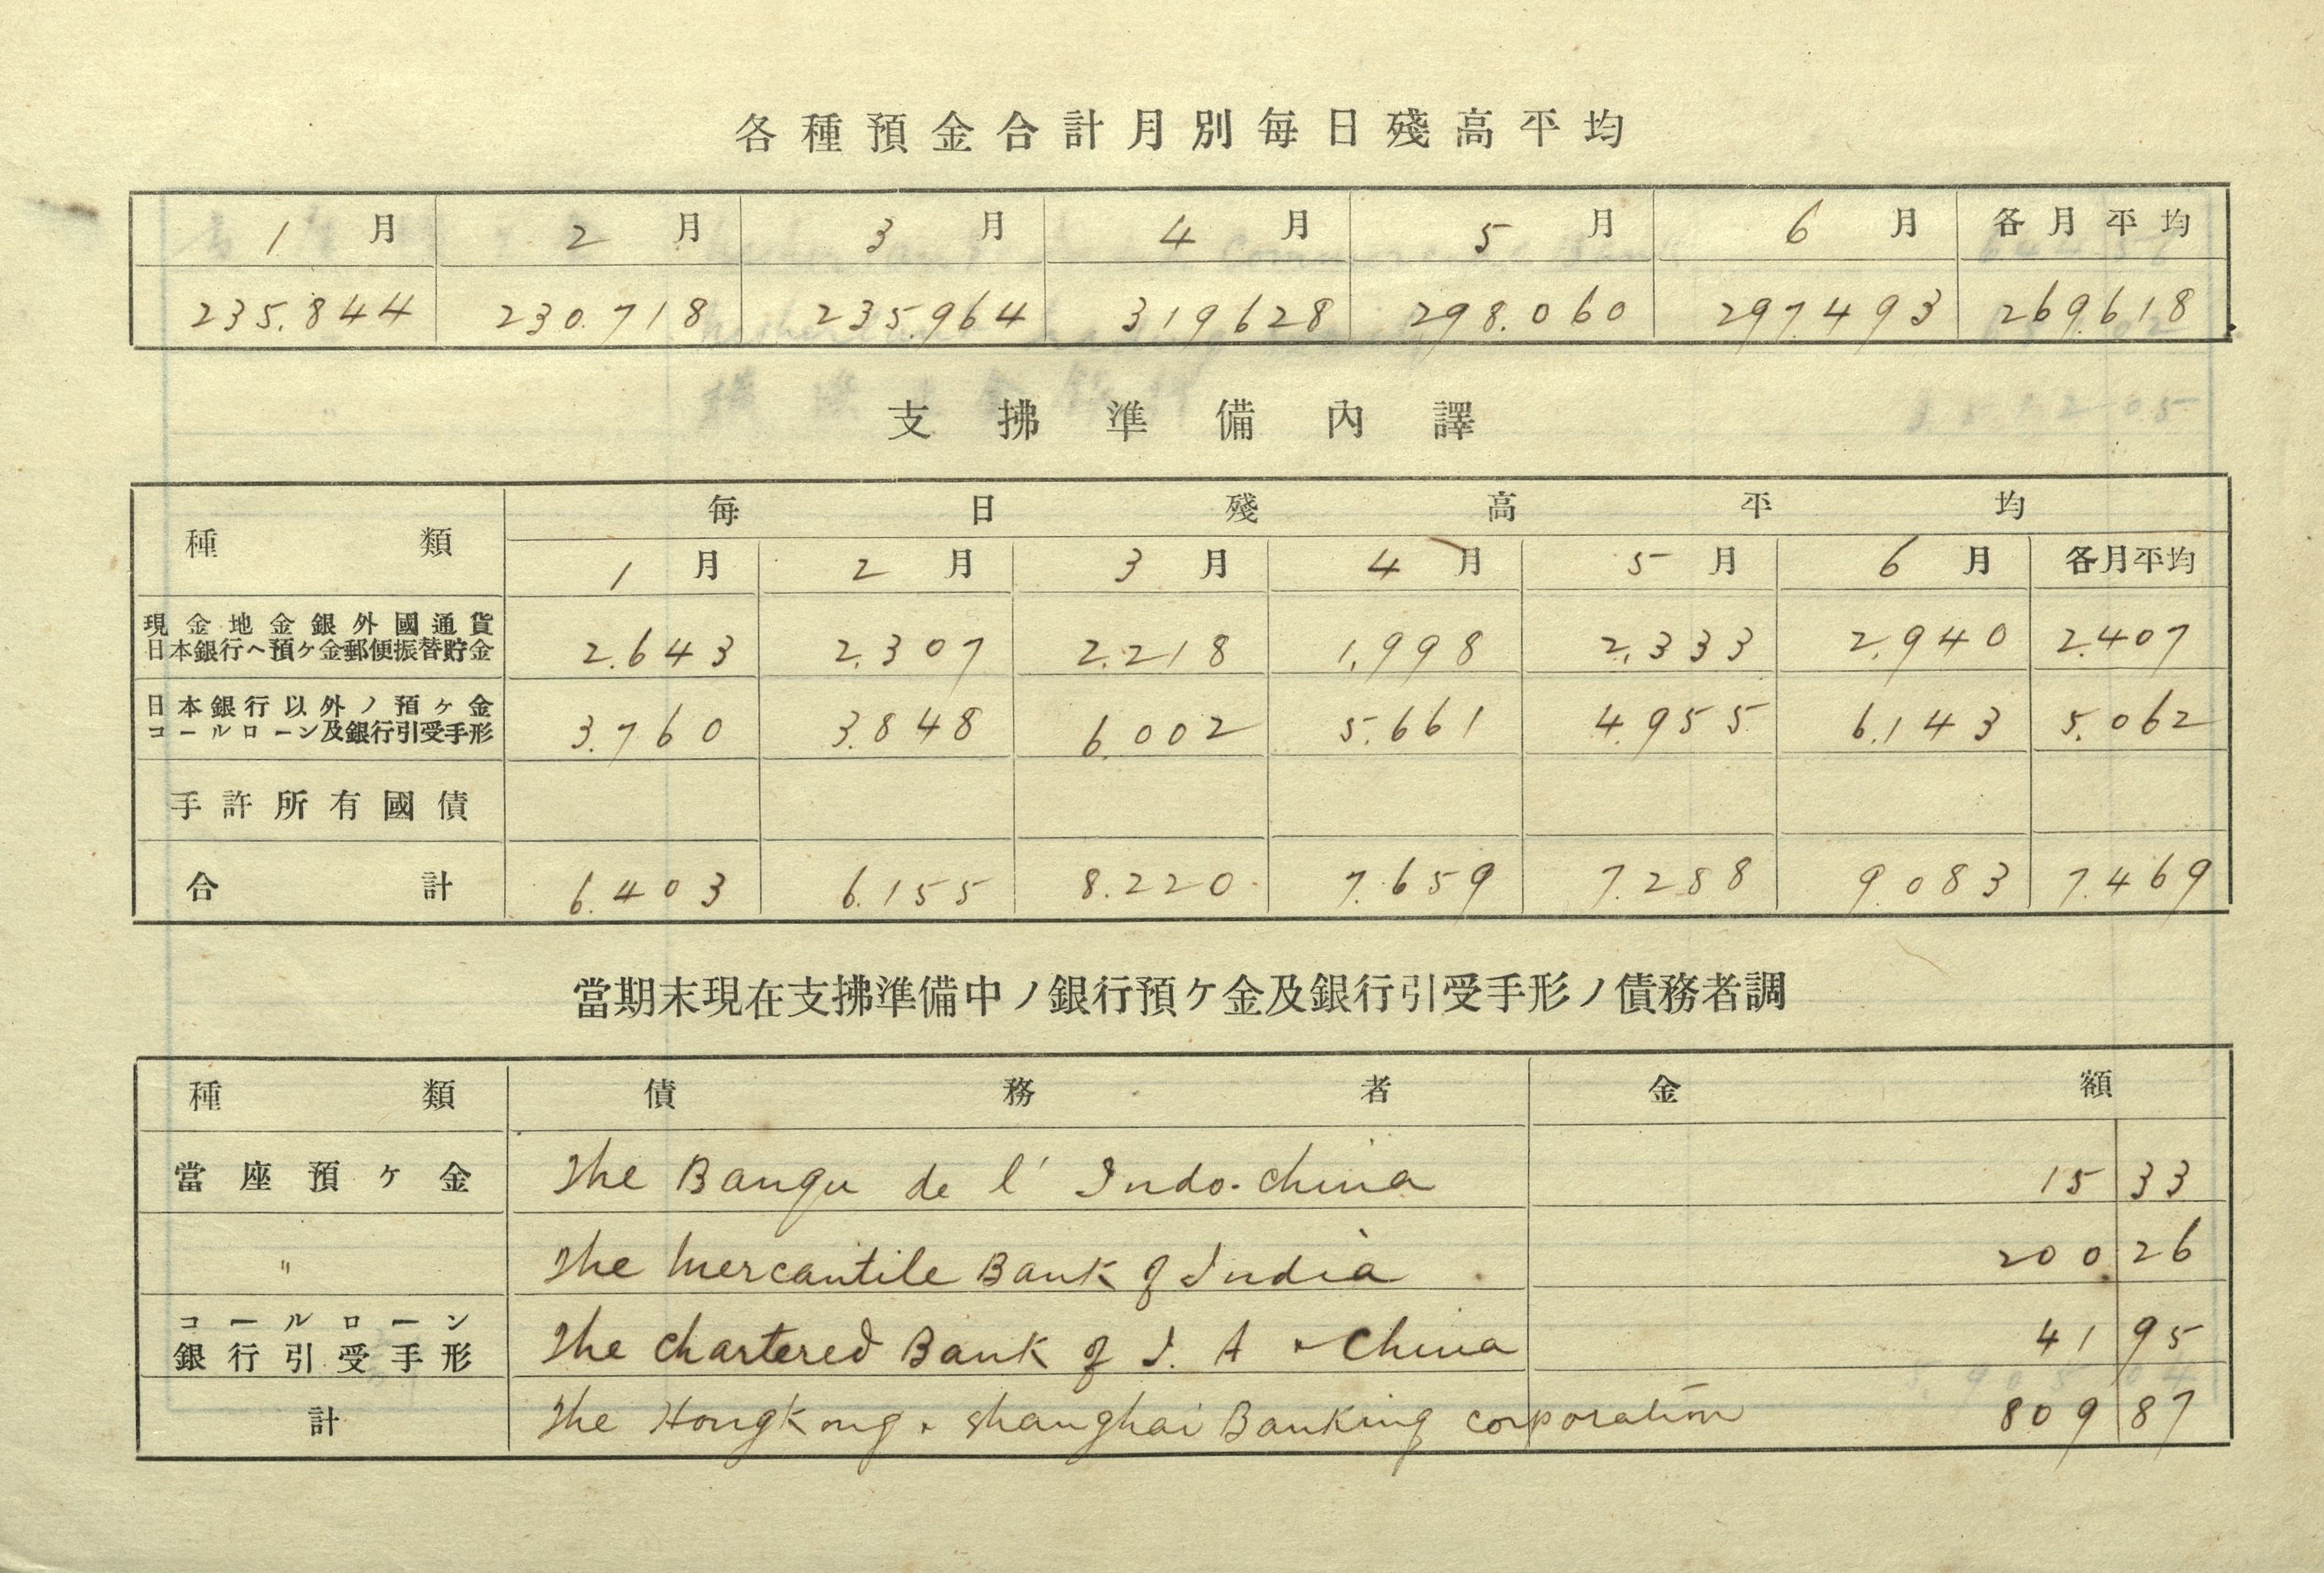 各種預金合計月別每日殘高平均
1月 2月 3月 4月 5月 6月 各月平均
235.844 230.718 235.964 319628 298.060 297.493 269.618
支拂準備內譯
種類 每日殘高平均
1月 2月 3月 4月 5月 6月 各月平均
現金地金銀外國通貨
日本銀行ヘ預ケ金郵便振替貯金 2.643 2.307 2.218 1.998 2.333 2.940 2.407
日本銀行以外ノ預ケ金
コールローン及銀行引受手形 3.760 3.848 6.002 5.661 4.955 6.143 5.062
手許所有國債
合計 6.403 6.155 8.220 7.659 7.288 9.083 7.469
當期末現在支拂準備中ノ銀行預ケ金及銀行引受手形ノ債務者調
種類 債務者 金額
當座預ケ金 The Banqu de l' Indo-china 15 33
〃 The Mercantile Bank of India 200 26
コールローン
銀行引受手形 The Chartered Bank of I. A & China 41 95
計 The Hongkong & Shanghai Banking corporation 809 87